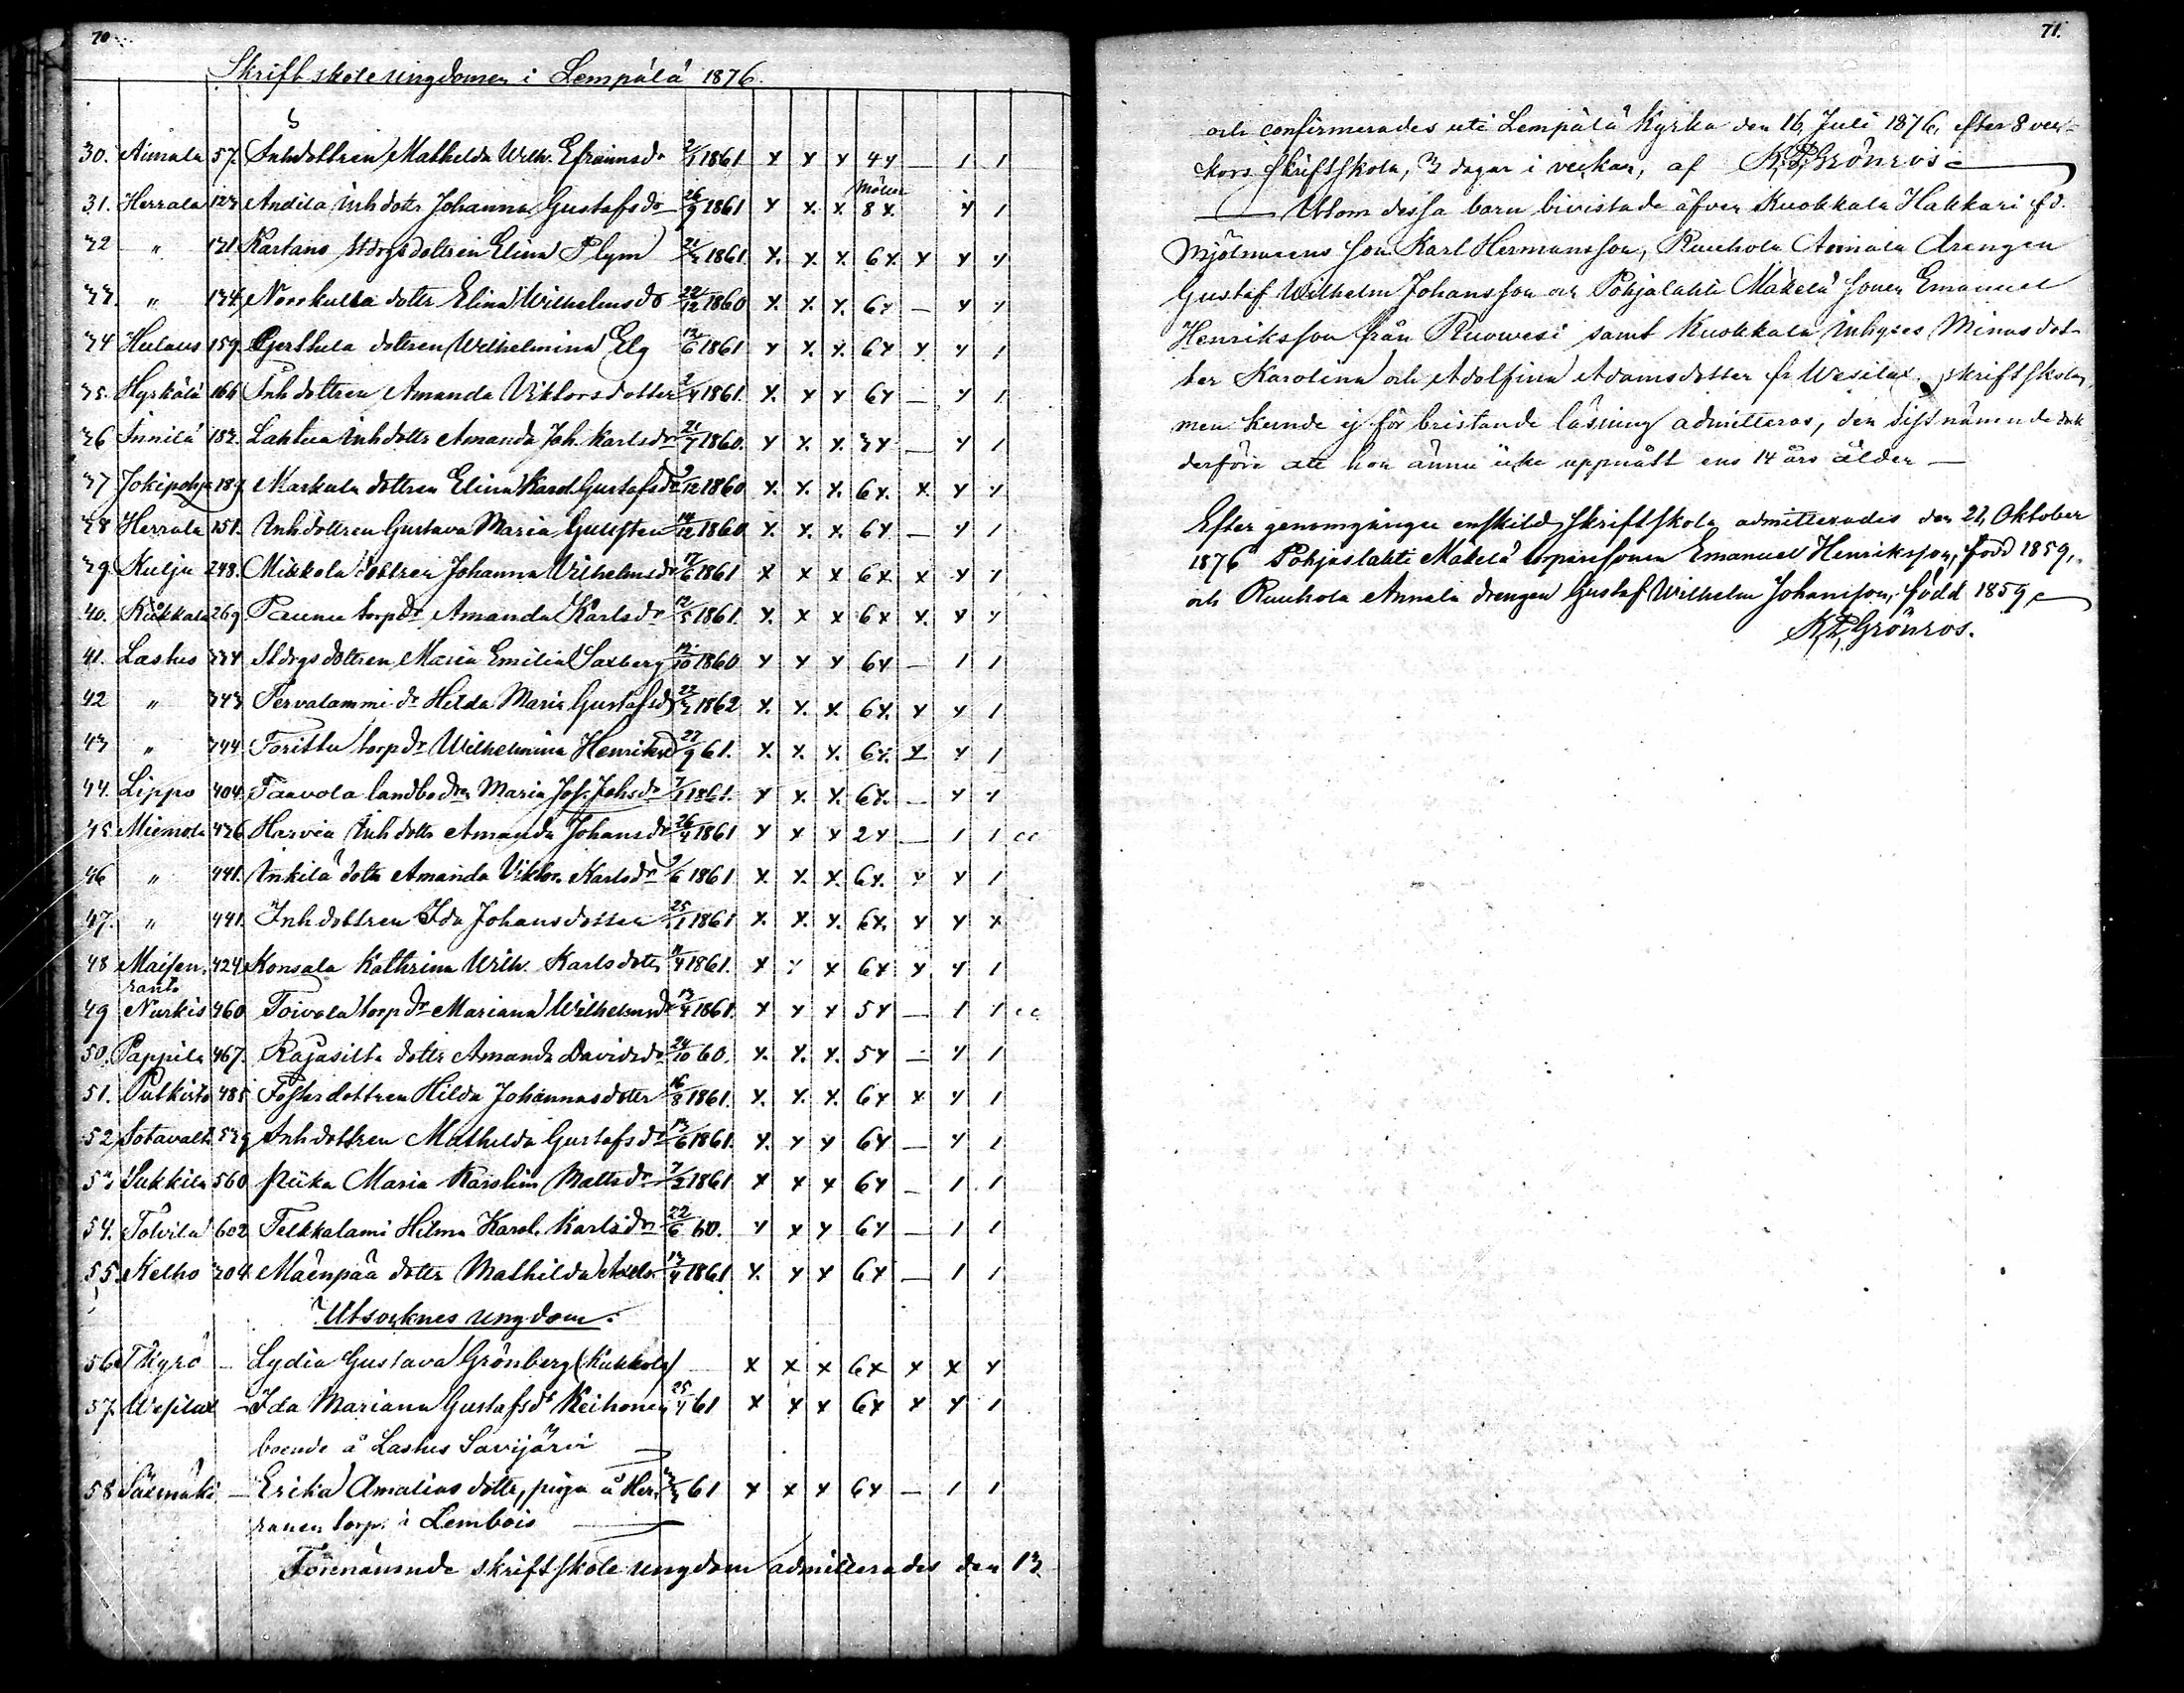 70
Skriftskoleungdomen i Lempälä 1876.
30. Aimala 57. Inhdottren Mathilda Wilh. Efraimsdr 2/1 1861 x x x 4x — 1 1
31. Herrala 123 Andila inh dottr Johanna Gustafsdr 26/9 1861 x x. x. 8x. x 1
32 " 131 Kartano stdrgs dottren Elina Plym 21/3 1861. x. x. x. 6x. x x x
33. " 134 dottr Elina Wilhelmsdr 22/12 1860 x. x. x. 6x — x x
34 Hulaus 159. Perttula dottren Wilhelmina Elg 13/6 1861 x x. x. 6x x x 1
35. Hyrkälä 166 Inhdottren Amanda Viktorsdotter 2/4 1861. x. x x 6x — x 1
36 Innilä 182. Lahtua inhdottr Amanda Joh. Karlsdr 21/7 1860. x x. x. 3x — x 1
37 Jokipohja 187 Markula dottren Elina Karol. Gustafsdr 2/12 1860 x. x. x. 6x. x x x
38 Herrala 151. Inhdottren Gustava Maria Gullsten 14/12 1860 x. x. x. 6x — x 1
39 Kulju 248. Mikkola dottren Johanna Wilhelmsdr 17/6 1861 x x x 6x x x x
40. Kukkala 269 Paunu torpdr Amanda Karlsdr 12/5 1861. x. x x 6x x. x x
41. Lastus 334 Stdrgs dottren Maria Emilia Saxberg 13/10 1860 x x x 6x — 1 1
42 " 343 Pervalammi dr Hilda Maria Gustafsdr 22/3 1862 x. x. x. 6x. x x 1
43 " 344 Torittu torpdr Wilhelmina Henriksd 27/9 61. x. x. x. 6x. x x 1
44. Lippo 404. Taavola landbodrn Maria Jos. Johsdr 7/1 1861. x x. x. 6x. — x x
45 Miemola 436 Harvia Inh dottr Amanda Johansdr 26/4 1861 x x x 2x — 1 1
46 " 441. Inkilä dottr Amanda Viktor. Karlsdr 3/6 1861 x. x. x. 6x. x x 1
47. " 441. Inhdottren Ida Johansdotter 25/1 1861 x. x. x. 6x. x x x
48 Maisenranta 424 Konsala Kathrina Wilh. Karlsdotter 11/4 1861. x x x 6x x x 1
49 Nurkis 460 Toivola torpdr Mariana Wilhelmsdr 13/4 1861. x x x 5x — 1 1
50. Pappila 467. Rajasilta dottr Amanda Davidsdr 24/10 60. x. x. x. 5x — x 1
51. Putkisto 485 Fosterdottren Hilda Johannasdotter 16/8 1861. x. x. x. 6x x x 1
52 Sotavalta 539 Inhdottren Mathilda Gustafsdr 13/6 1861. x. x x 6x — x 1
53 Sukkila 560 Maria Karolina Mattsdr 7/2 1861 x x x 6x — 1 1
54. Tolvila 602 Telkkalami Hilma Karol. Karlsdr 22/6 60. x x x 6x — 1 1
55. Kelho 204 Mäenpää dottr Mathilda 13/4 1861 x. x x 6x — 1 1
Utsocknes ungdom.
56 T. kyrö — Lydia Gustava Grönberg (Kukkola) x x x 6x x x x
57. Wesilax — Ida Mariana Gustafsdr Keihonen 25/4 61 x x x 6x x x 1
boende å Lastus Savijärvi
58 Säxmäki — Erika Amaliasdotter, piga å Her- 61 x x x 6x — 1 1
ranen torp i Lembois
Förenämnde skriftskole ungdom admitterades den 13
71.
och confirmerades uti Lempälä Kyrka den 16. Juli 1876, efter 8 vec-
kors skriftskola, 3 dagar i veckan, af K. P. Grönros
— Utom dessa barn bivistade äfven Kuokkala Hakkari fd.
Mjölnarens son Karl Hermansson, Ruuhola Annala drengen
Gustaf Wilhelm Johansson och Pohjalahti Mäkelä sonen Emanuel
Henriksson från Ruowesi samt Kuokkala inhyses Minas dot-
ter Karolina och Adolfina Adamsdotter fr Wesilax skriftskolan,
men kunde ej för bristande läsning admitteras, den sistnämnde
derföre att hon ännu icke uppnått ens 14 års ålder —
Efter genomgången enskild skriftskola admitterades den 21 Oktober
1876 Pohjaslahti Mäkelä torparesonen Emanuel Henriksson, född 1859,
och Ruuhola Annala drengen Gustaf Wilhelm Johansson, född 1859
K. P. Grönros.